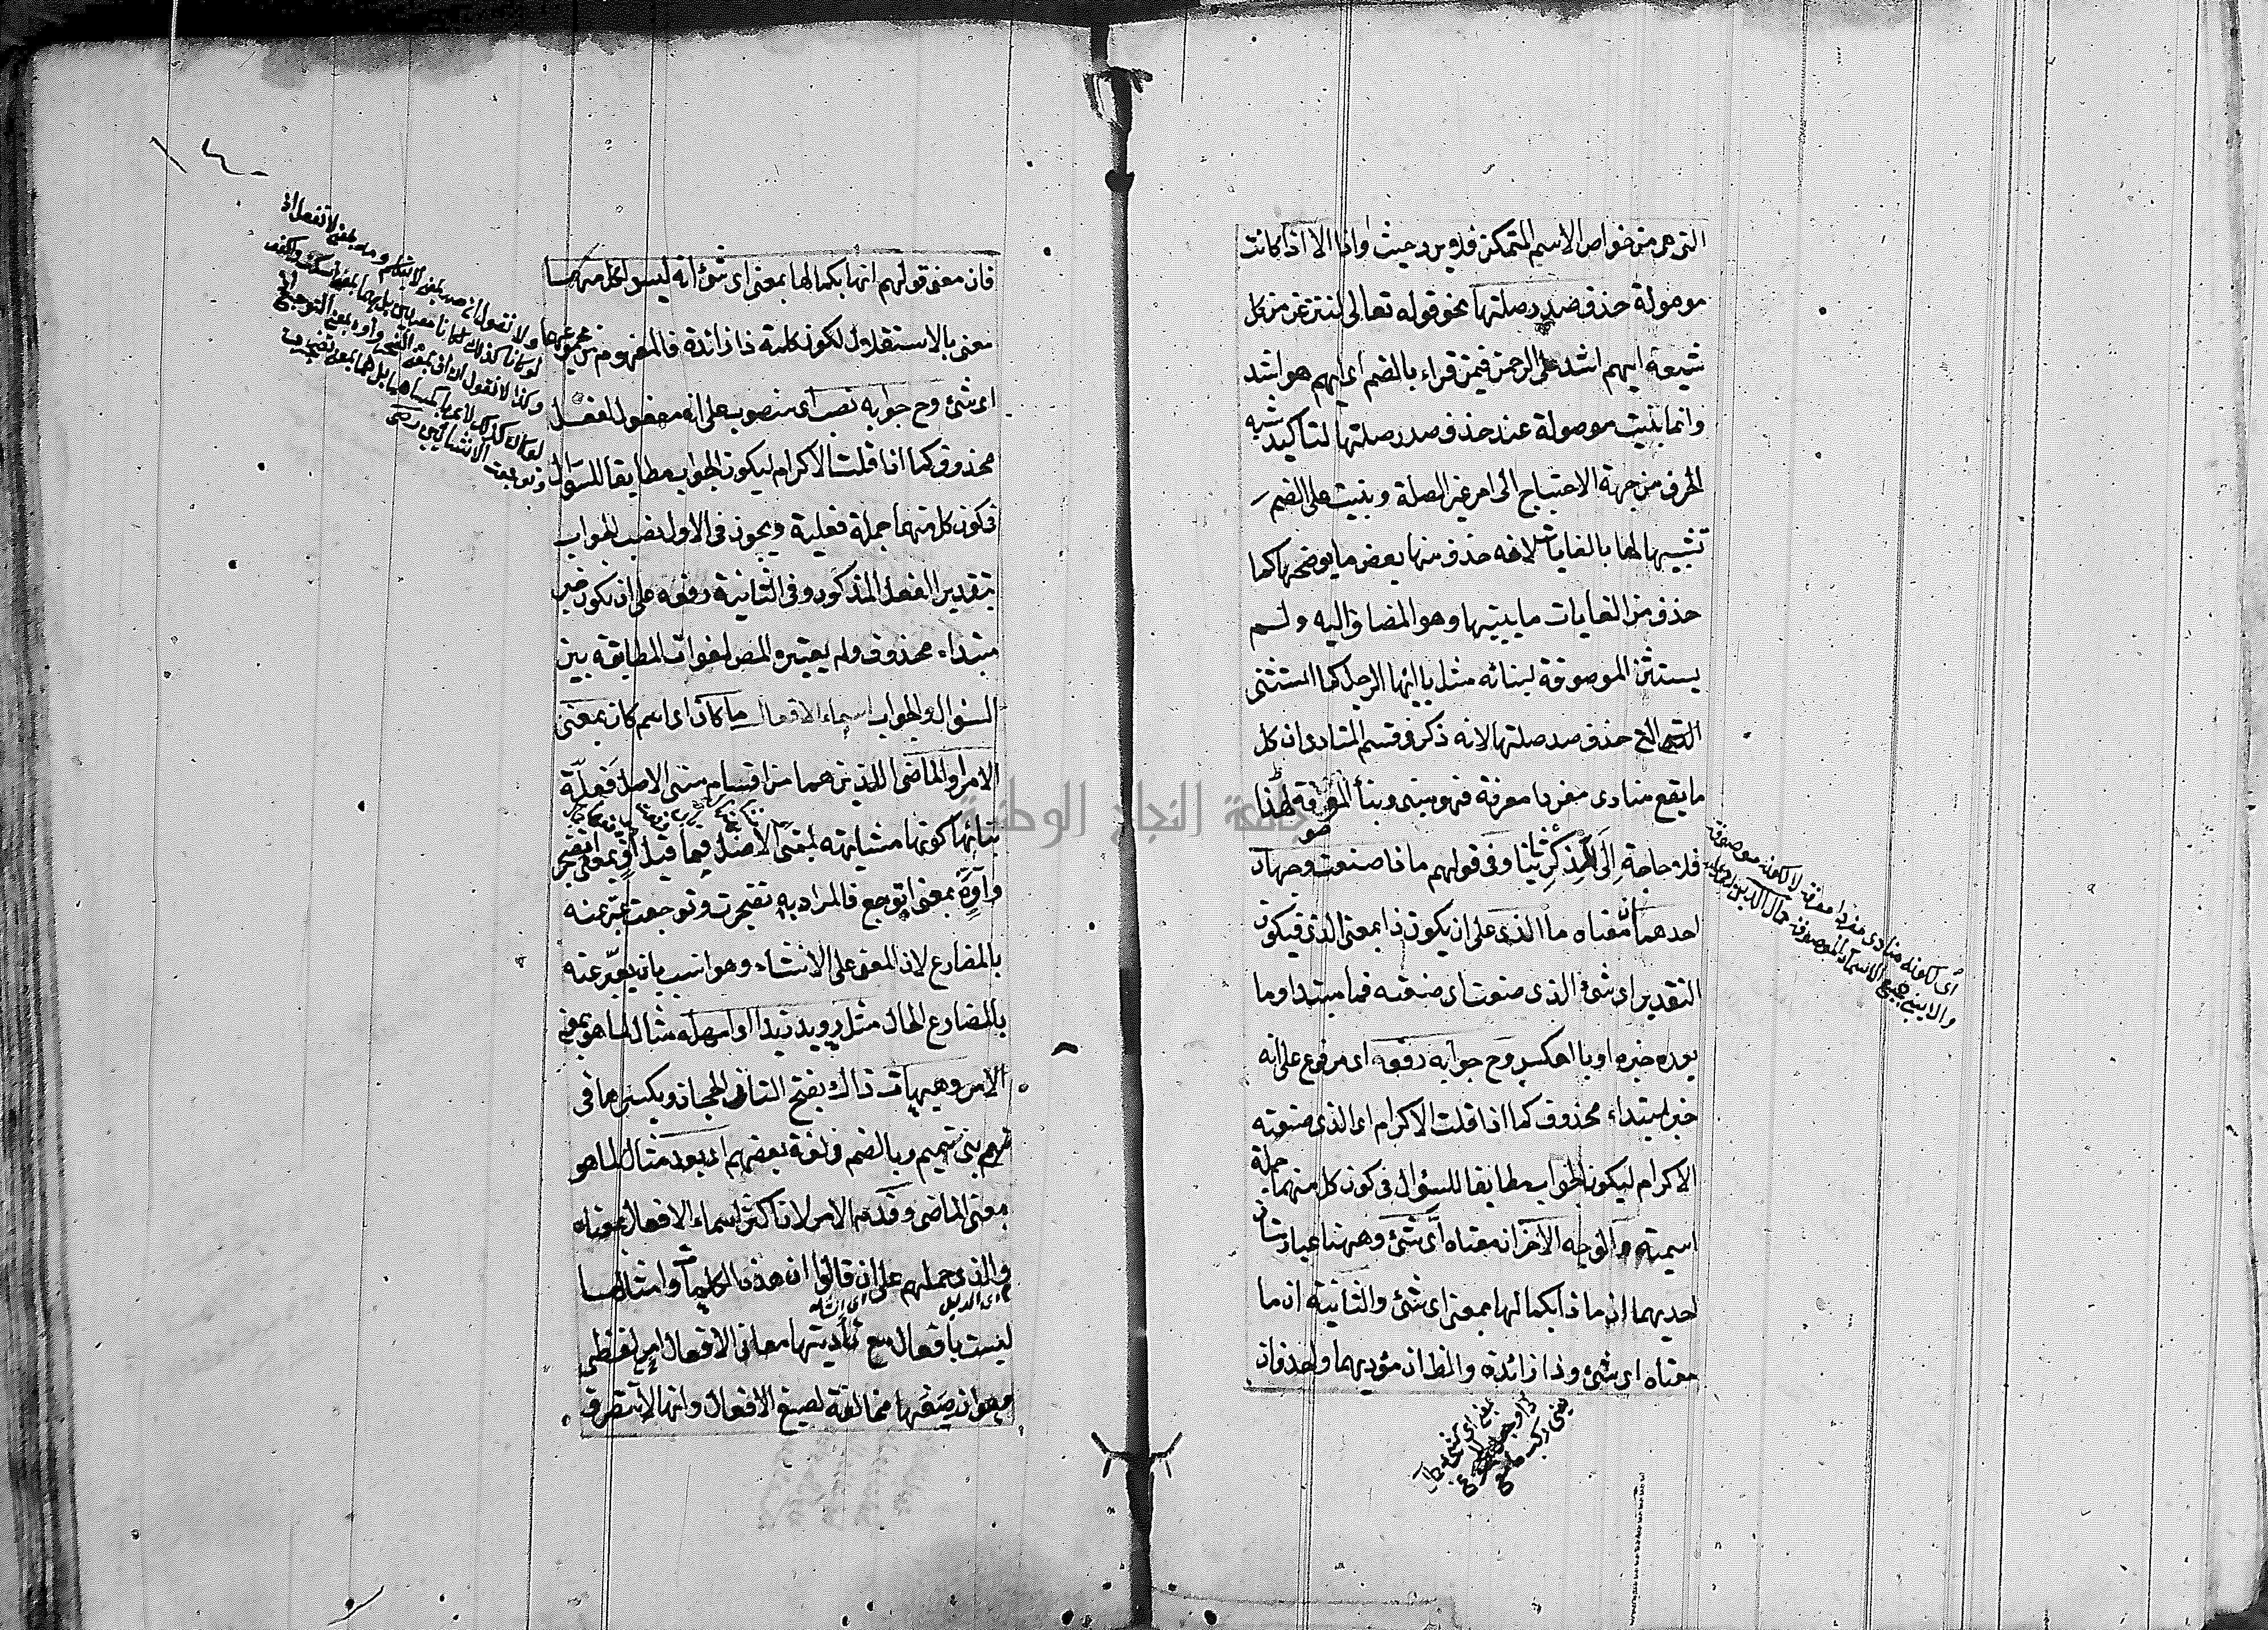 التى هى من خواص الاسم المتمكن فلا يرد حيث واذا الا اذا كانت
موصولة حذف صدر صلتها نحو قوله تعالى لننزعن من كل
شيعة ايهم اشد على الرحمن فيمن قراء بالضم اى ايهم هو اشد
وانما بنيت موصولة عند حذف صدر صلتها لتاكيد شبه
الحرف من جهة الاحتياج الى امر غير الصلة وبنيت على الضم
تشبيها لها بالغايات لانه حذف منها بعض ما يوضحها كما
حذف من الغايات ما يبينها وهو المضاف اليه ولم
يستثن الموصوفة لبنائه مثل يا ايها الرجل كما استثنى
التى حذف صدر صلتها لانه ذكر فى قسم المنادى ان كل
ما يقع منادى مفردا معرفة فهو مبنى وبنا المعرفة
فلا حاجة الى ذكره ثانيا وفى قولهم ماذا صنعت وجهان
احدهما ان معناه ما الذى على ان يكون ذا بمعنى الذى فيكون
التقدير اى شئ الذى صنعت اى صنعته فما مبتدا وما
بعده خبره او بالعكس وح جوابه رفع اى مرفوع على انه
خبر مبتداء محذوف كما اذا قلت الاكرام اى الذى صنعته
الاكرام ليكون الجواب مطابقا للسؤال فى كون كل منهما جملة
اسمية والوجه الآخر ان معناه اى شئ وههنا عبارتان
احديهما ان ماذا بكمالها بمعنى اى شئ والثانية ان ما
معناه اى شئ وذا زائدة والظ ان مؤديهما واحد فان
اى لكونه منادى مفردا معرفة لا لكونه موصوفة
فان معنى قولهم انها بكمالها بمعنى اى شئ انه ليس لكل منهما
معنى بالاستقلال لكون كلمة ذا زائدة فالمفهوم من مجموعهما
اى شئ وح جوابه نصب اى منصوب على انه مفعول لفعل
محذوف كما اذا قلت الاكرام ليكون الجواب مطابقا للسؤال
فى كون كل منهما جملة فعلية ويجوز فى الاول نصب الجواب
بتقدير الفعل المذكور وفى الثانية رفعه على ان يكون خبر
مبتداء محذوف ولم يعتبره المص لفوات المطابقة بين
السؤال والجواب اسماء الافعال ما كان اى اسم كان بمعنى
الامر او الماضى اللذين هما من اقسام مبنى الاصل فعلة
بنائها كونها مشابهة لمبنى الاصل فيما قيل اف بمعنى اتضجر
واوه بمعنى اتوجع فالمراد به تضجرت وتوجعت عبر عنه
بالمضارع لان المعنى على الانشاء وهو انسب بان يعبر عنه
بالمضارع الحال مثل رويد زيدا اى امهله مثال لما هو بمعنى
الامر وهيهات ذاك بفتح التاء فى الحجاز وبكسرها فى
بنى تميم وبالضم فى لغة بعضهم اى بعد مثال لما هو
بمعنى الماضى وقدم الامر لان اكثر اسماء الافعال بمعناه
والذى حملهم على ان قالوا ان هذه الكلمات وامثالها
ليست بافعال مع تأديتها معانى الافعال امر لفظى
وهو ان صيغها مخالفة لصيغ الافعال وانها لا تتصرف